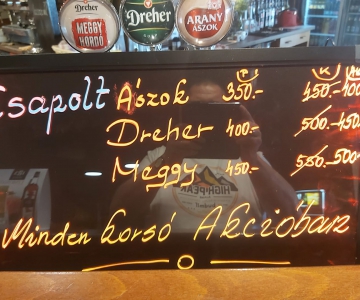 MEGGY
HORDÓ
Dreher
ARANY
ÁSZOK
P K
Csapolt Ászok 350.- 450.- 400
Dreher 400.- 500.- 450
- Meggy 450.- 550.- 500
HIGH PEAK
Minden korsó Akcióban